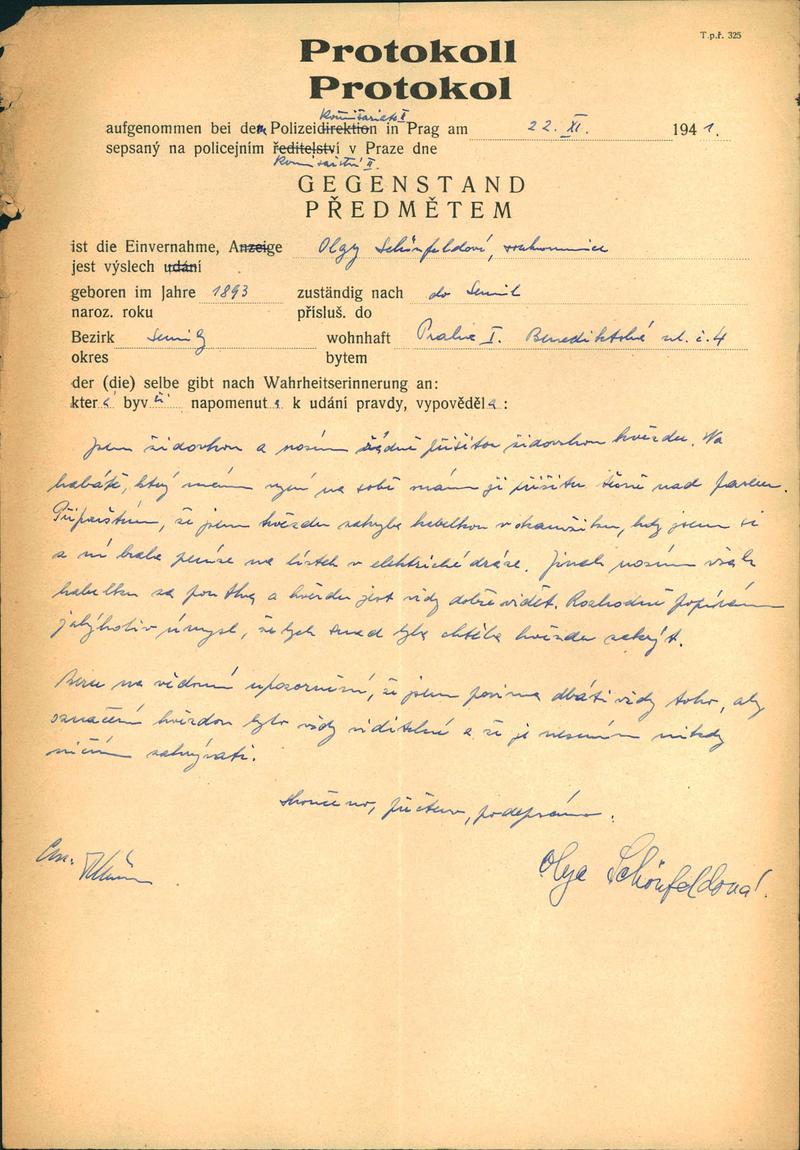 T.p.ř. 325
Protokoll
Protokol
Komisariats II
aufgenommen bei dem Polizeidirektion in Prag am 22. XI. 1941.
sepsaný na policejním ředitelství v Praze dne
Komisařství II.
GEGENSTAND
PŘEDMĚTEM
ist die Einvernahme, Anzeige Olgy Schönfeldové, soukromnice
jest výslech udání
geboren im Jahre 1893 zuständig nach do Semil
naroz. roku přísluš. do
Bezirk Semily wohnhaft Praha I. Benediktská ul. č. 4
okres bytem
der (die) selbe gibt nach Wahrheitserinnerung an:
která byvši napomenuta k udání pravdy, vypověděla:
Jsem židovkou a nosím řádně přišitou židovskou hvězdu. Na
kabátě, který mám nyní na sobě mám ji přišitu těsně nad pasem.
Připouštím, že jsem hvězdu zakryla kabelkou v okamžiku, kdy jsem si
z ní brala peníze na lístek v elektrické dráze. Jinak nosím však
kabelku za poutka a hvězdu jest vždy dobře vidět. Rozhodně popírám
jakýkoliv úmysl, že bych snad byla chtěla hvězdu zakrýt.
Beru na vědomí upozornění, že jsem povinna dbáti vždy toho, aby
označení hvězdou bylo vždy viditelné a že je nesmím nikdy
ničím zakrývati.
Skončeno, přečteno, podepsáno.
Olga Schönfeldová